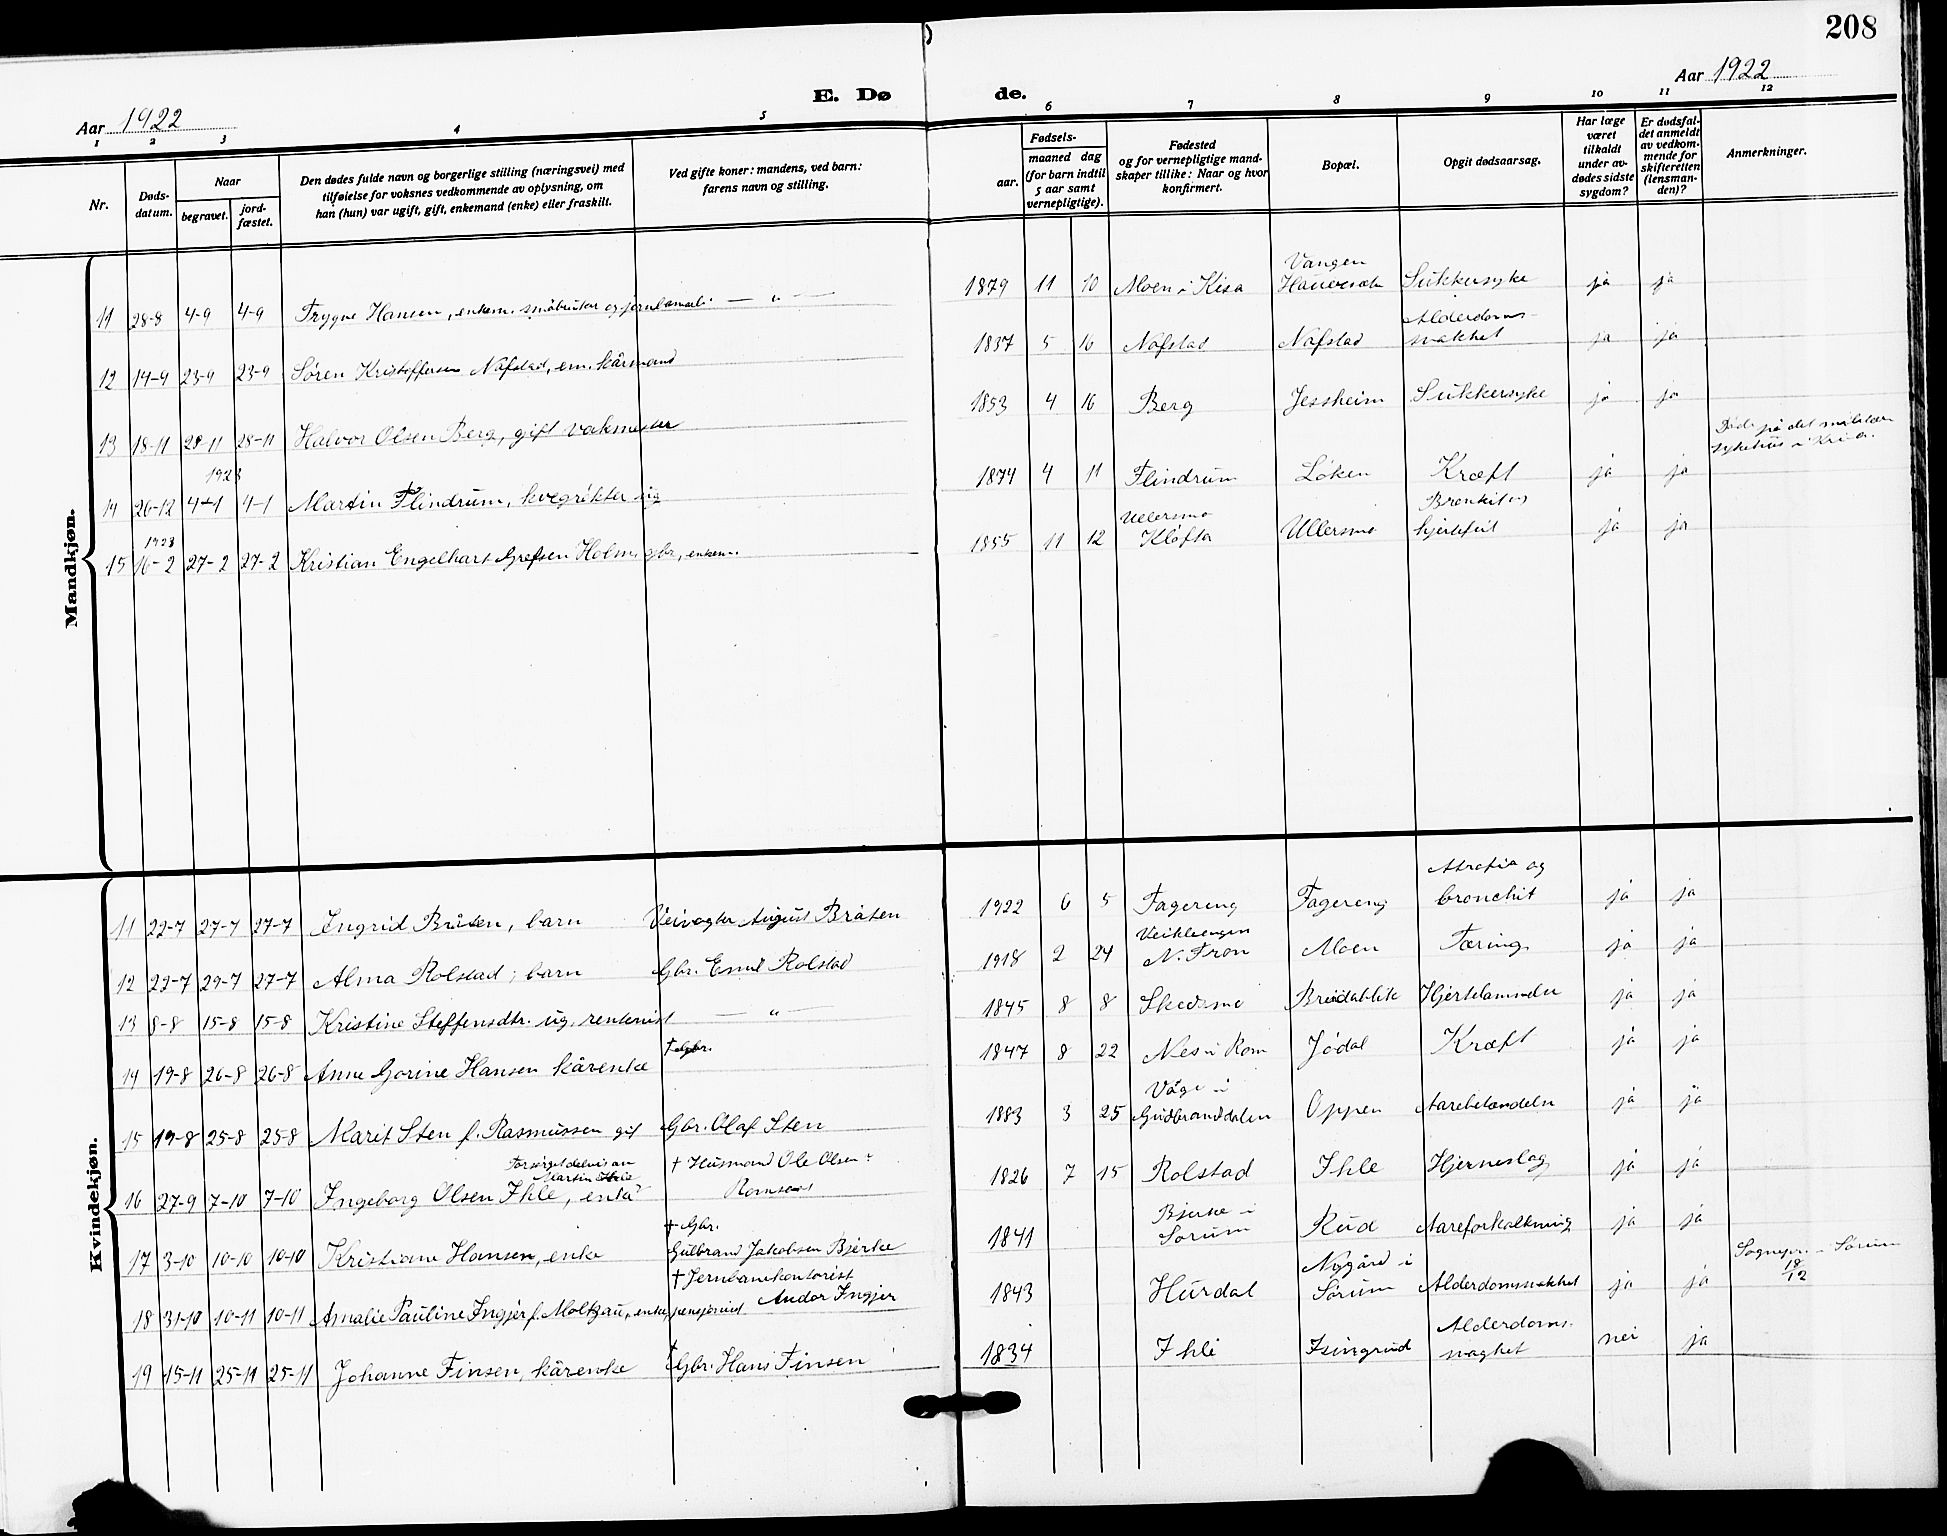 208
Aar 1922
E. Dø de.
Aar 1922
1 2 3 4 5 6 7 8 9 10 11 12
Nr.
Døds-
datum.
Naar
begravet.
jord-
fæstet.
Den dødes fulde navn og borgerlige stilling (næringsvei) med
tilføielse for voksnes vedkommende av oplysning, om
han (hun) var ugift, gift, enkemand (enke) eller fraskilt.
Ved gifte koner: mandens, ved barn:
farens navn og stilling.
Fødsels-
aar.
maaned dag
(for barn indtil
5 aar samt
vernepligtige).
Fødested
og for vernepligtige mand-
skaper tillike: Naar og hvor
konfirmert.
Bopæl.
Opgit dødsaarsag.
Har læge
været
tilkaldt
under av-
dødes sidste
sygdom?
Er dødsfal-
det anmeldt
av vedkom-
mende for
skifteretten
(lensman-
den)?
Anmerkninger.
Mandkjøn.
Vangen
11 28-8 4-9 4-9 Trygve Hansen, enkem. småbruker og — " — 1879 11 10 Moen i Kisa Sukkersyke ja ja
Alderdoms-
12 14-9 23-9 23-9 Søren Kristoffersen Nafstad, em. kårmand 1837 5 16 Nafstad Nafstad svakhet ja ja
13 18-11 28-11 28-11 Halvor Olsen Berg, gift vakmester 1853 4 16 Berg Jessheim Sukkersyke ja ja
1923
Døde på det militære
sykehus i Kr.a.
14 26-12 4-1 4-1 Martin Flindrum, kvegrøkter ug 1874 4 11 Flindrum Løken Kræft ja ja
1923
Ullersmo
Bronkit og
15 16-2 27-2 27-2 Kristian Engelhart Grefsen Holm gbr, enkem. 1855 11 12 Kløfta Ullersmo hjertefeil ja ja
Kvindekjøn.
Atrofia og
11 22-7 27-7 27-7 Ingrid Bråten, barn Veivogter August Bråten 1922 6 5 Fagereng Fagereng bronchit ja ja
12 22-7 27-7 27-7 Alma Rolstad, barn Gbr. Emil Rolstad 1918 2 24 N. Fron Moen Tæring ja ja
13 8-8 15-8 15-8 Kristine Steffensdtr. ug. rentenist — " — 1845 8 8 Skedsmo Breidablik Hjertelammelse ja ja
† Gbr.
14 19-8 26-8 26-8 Anne Gorine Hansen kårenke 1847 8 22 Nes i Rom Jødal Kræft ja ja
Våge i
15 19-8 25-8 25-8 Marit Sten f. Rasmussen gif Gbr. Olaf Sten 1883 3 25 Gudbrandsdalen Oppen Aarebetændelse ja ja
Forsørget delvis av
Martin Ihle
† Husmand Ole Olsen
16 27-9 7-10 7-10 Ingeborg Olsen Ihle, enke Romsaas 1826 7 15 Rolstad Ihle Hjerneslag ja ja
† Gbr.
Bjerke i
17 3-10 10-10 10-10 Kristiane Hansen, enke Gulbrand Jakobsen Bjerke 1841 Sørum Rud Aareforkalkning ja ja
† Jernbanekontorist
Nygård i
Sognepr. i Sørum
18/12
18 31-10 10-11 10-11 Amalie Pauline Ingjer f. Moltzau, enke, pensjonist Andor Ingjer 1843 Hurdal Sørum Alderdomssvakhet ja ja
Alderdoms-
19 15-11 25-11 25-11 Johanne Finsen, kårenke † Gbr. Hans Finsen 1834 Ihle Isingrud svaghet nei ja